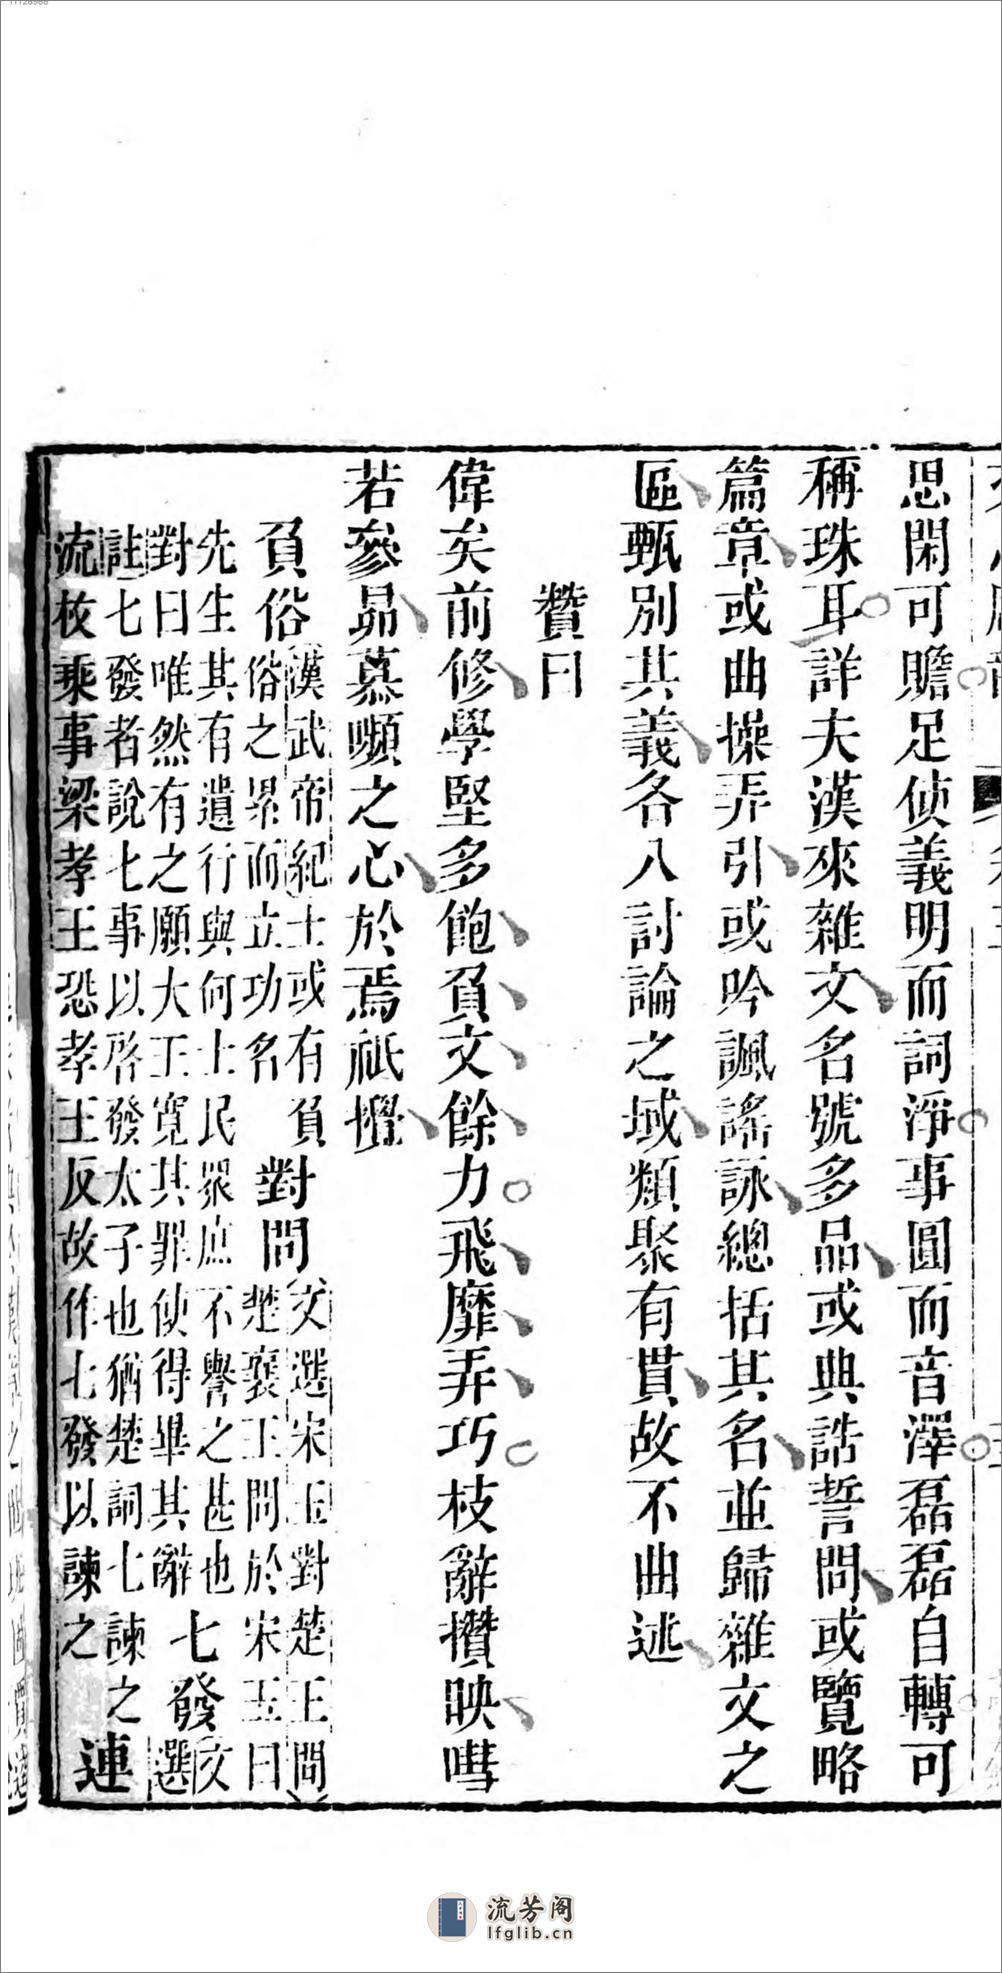 思閑可贍足使義明而詞淨事圓而音澤磊磊自轉可
稱珠耳詳夫漢來雜文名號多品或典誥誓問或覽略
篇章或曲操弄引或吟諷謠詠總括其名並歸雜文之
區甄別其義各入討論之域類聚有貫故不曲述
贊曰
偉矣前修學堅多飽負文餘力飛靡弄巧枝辭攢映嘒
若參昴慕嚬之心於焉祇攪
負俗
漢武帝紀士或有負
俗之累而立功名
對問
文選宋玉對楚王問
楚襄王問於宋玉曰
先生其有遺行與何士民眾庶不譽之甚也
對曰唯然有之願大王寬其罪使得畢其辭
七發
文
選
註七發者說七事以啓發太子也猶楚詞七諫之
流枚乘事梁孝王恐孝王反故作七發以諫之
連
流芳阁
lfglib.cn